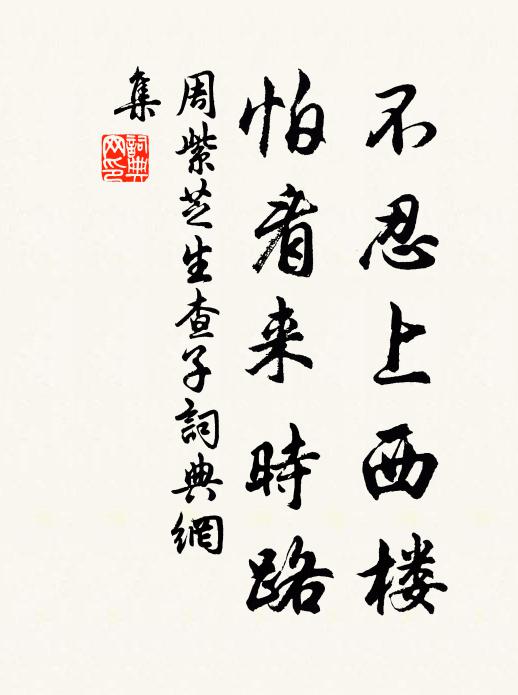 不忍上西楼
怕看来時路
周紫芝生查子詞典網
集
詞典
网印